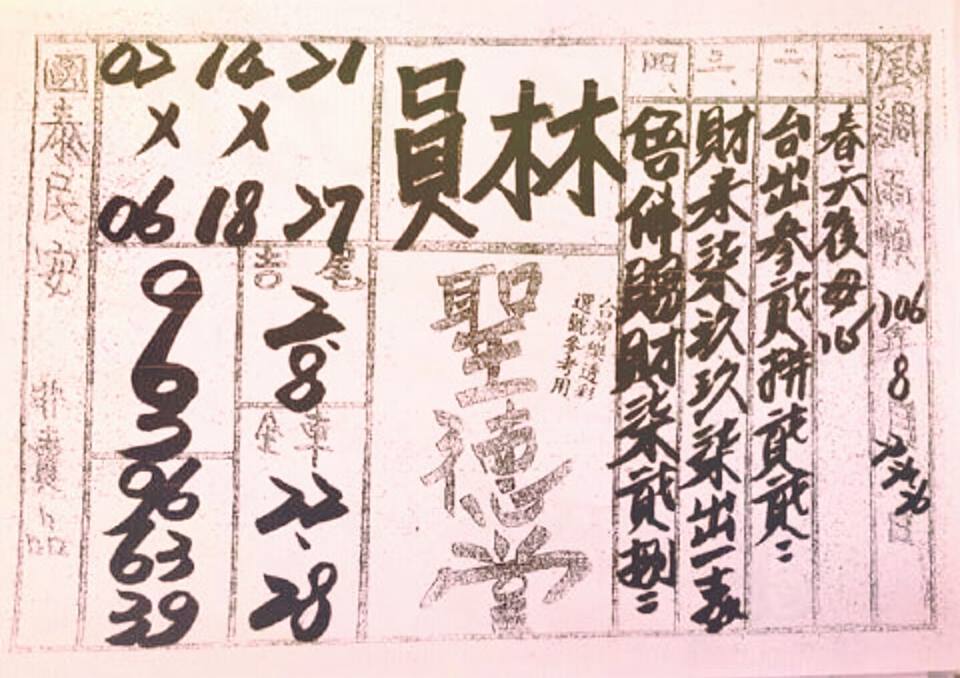 風調雨順
106年8月24.26日
一、
春六後母15
二、
台出參貳拼貳貳:
三、
財來柒玖玖柒出一表
四、
財柒貳捌:
員林
台灣樂透彩
選號參考用
聖德堂
02 14 21
X X
06 18 27
吉尾
2.8
全車
22、28
9
1
9
5
96
63
39
國泰民安 非賣品